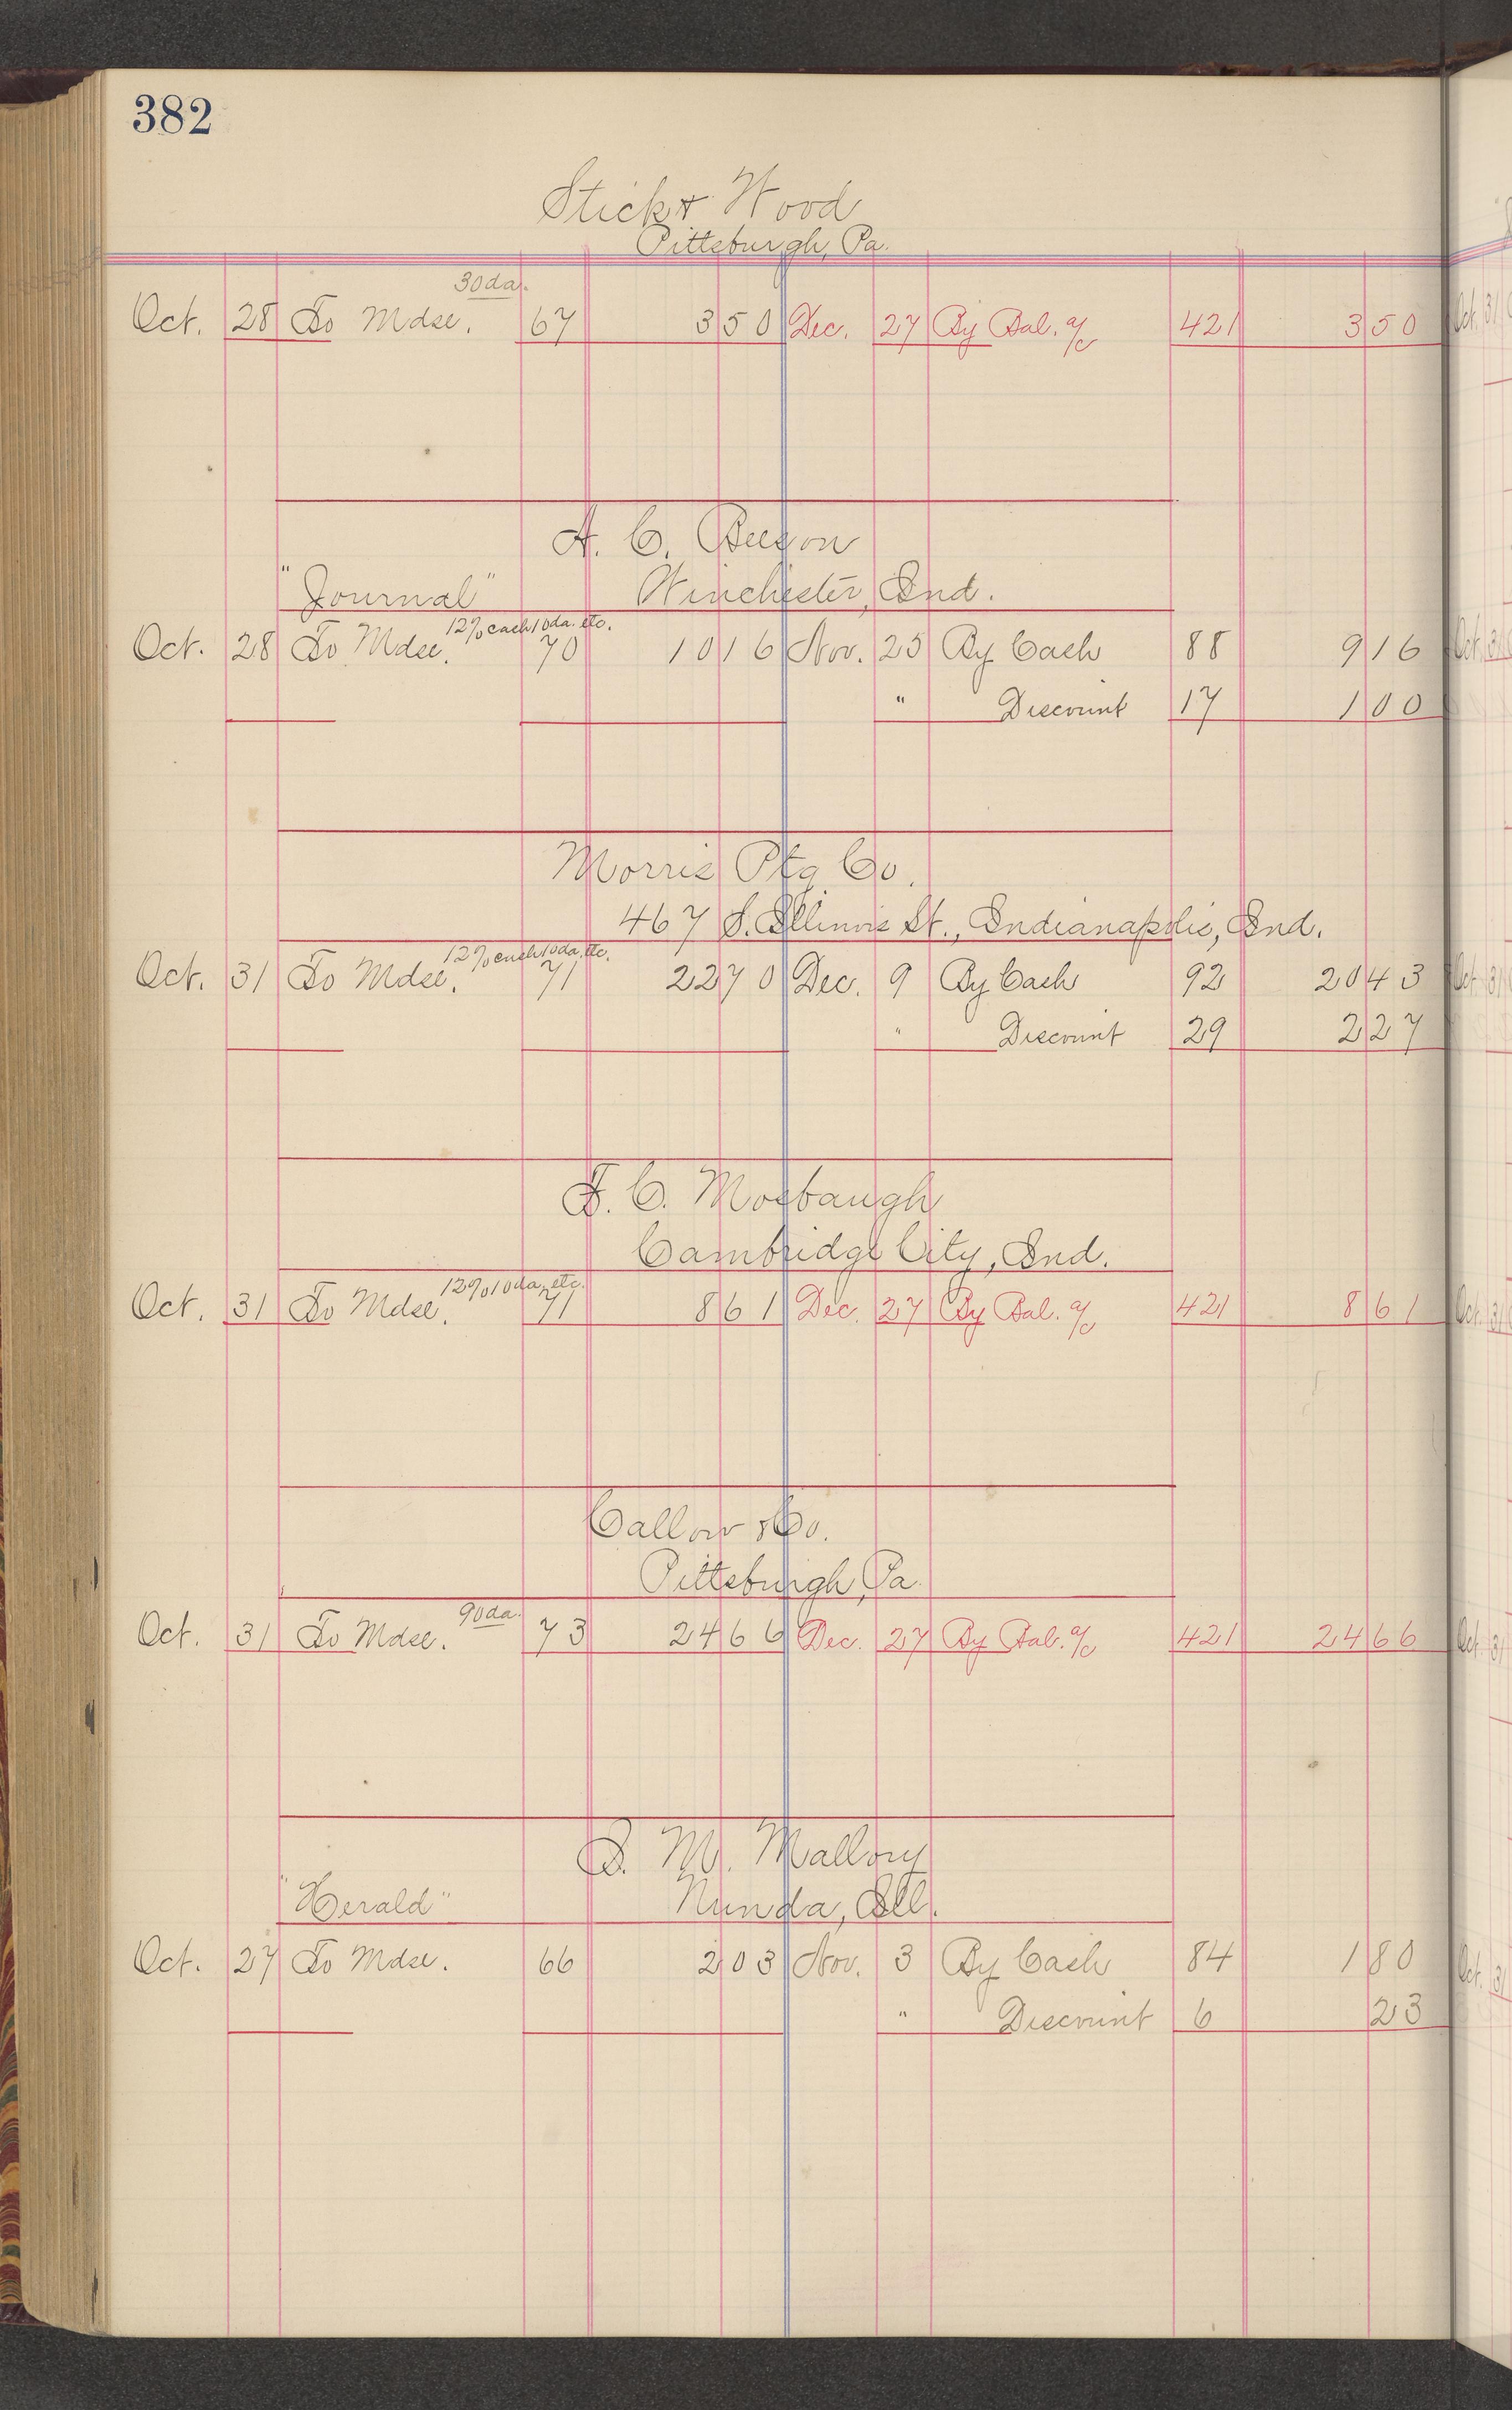 382
Stick & Wood
Pittsburgh, Pa.
30 da.
Oct. 28 To Mdse. 67 3 50 Dec. 27 By Bal. a/c 421 3 50
A. C. Beeson
"Journal" Winchester, Ind.
12% cash 10 da. etc.
Oct. 28 To Mdse. 70 10 16 Nov. 25 By Cash 88 9 16
" Discount 17 1 00
Morris Ptg Co.
467 S. Illinois St., Indianapolis, Ind.
12% cash 10 da. etc.
Oct. 31 To Mdse. 71 22 70 Dec. 9 By Cash 92 20 43
" Discount 29 2 27
F. C. Mosbaugh
Cambridge City, Ind.
12% 10 da. etc.
Oct. 31 To Mdse. 71 8 61 Dec. 27 By Bal. a/c 421 8 61
Callow & Co.
Pittsburgh, Pa.
90 da.
Oct. 31 To Mdse. 73 24 66 Dec. 27 By Bal. a/c 421 24 66
S. M. Mallory
"Herald" Nunda, Ill.
Oct. 27 To Mdse. 66 2 03 Nov. 3 By Cash 84 1 80
" Discount 6 23